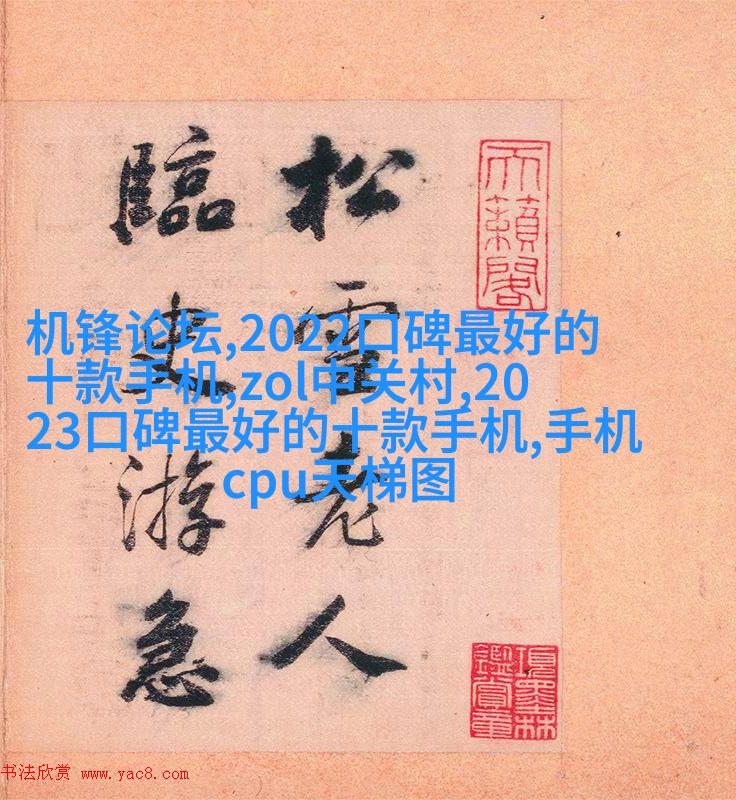 天籟閣
項墨林
鑑賞章
松雪老人
臨史游急
机锋论坛,2022口碑最好的
十款手机,zol中关村,20
23口碑最好的十款手机,手机
cpu天梯图
书法欣赏 www.yac8.com